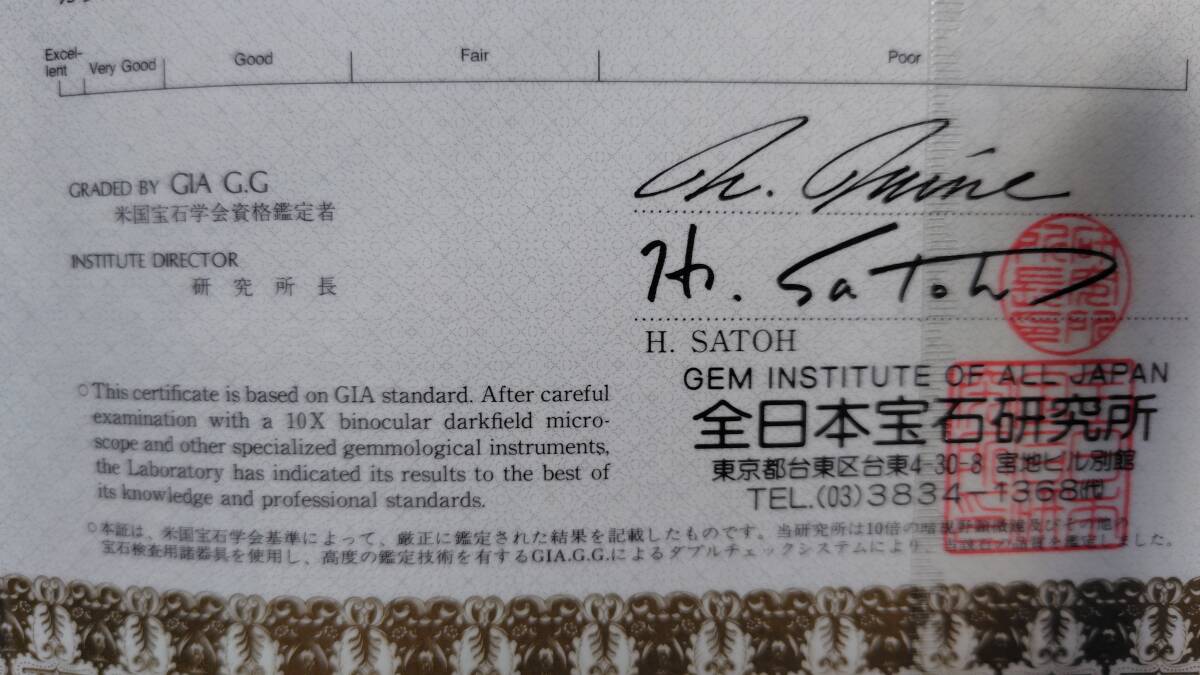 Excel-
lent
Very Good
Good
Fair
Poor
GRADED BY GIA G.G
米国宝石学会資格鑑定者
INSTITUTE DIRECTOR
研究所長
H. Satoh
H. SATOH
GEM INSTITUTE OF ALL JAPAN
全日本宝石研究所
東京都台東区台東4-30-8 宮地ビル別館
TEL.(03)3834-1368㈹
○This certificate is based on GIA standard. After careful
examination with a 10X binocular darkfield micro-
scope and other specialized gemmological instruments,
the Laboratory has indicated its results to the best of
its knowledge and professional standards.
○本証は、米国宝石学会基準によって、厳正に鑑定された結果を記載したものです。当研究所は10倍の暗視野顕微鏡及びその他の
宝石検査用諸器具を使用し、高度の鑑定技術を有するGIA.G.G.によるダブルチェックシステムにより、 鑑定しました。